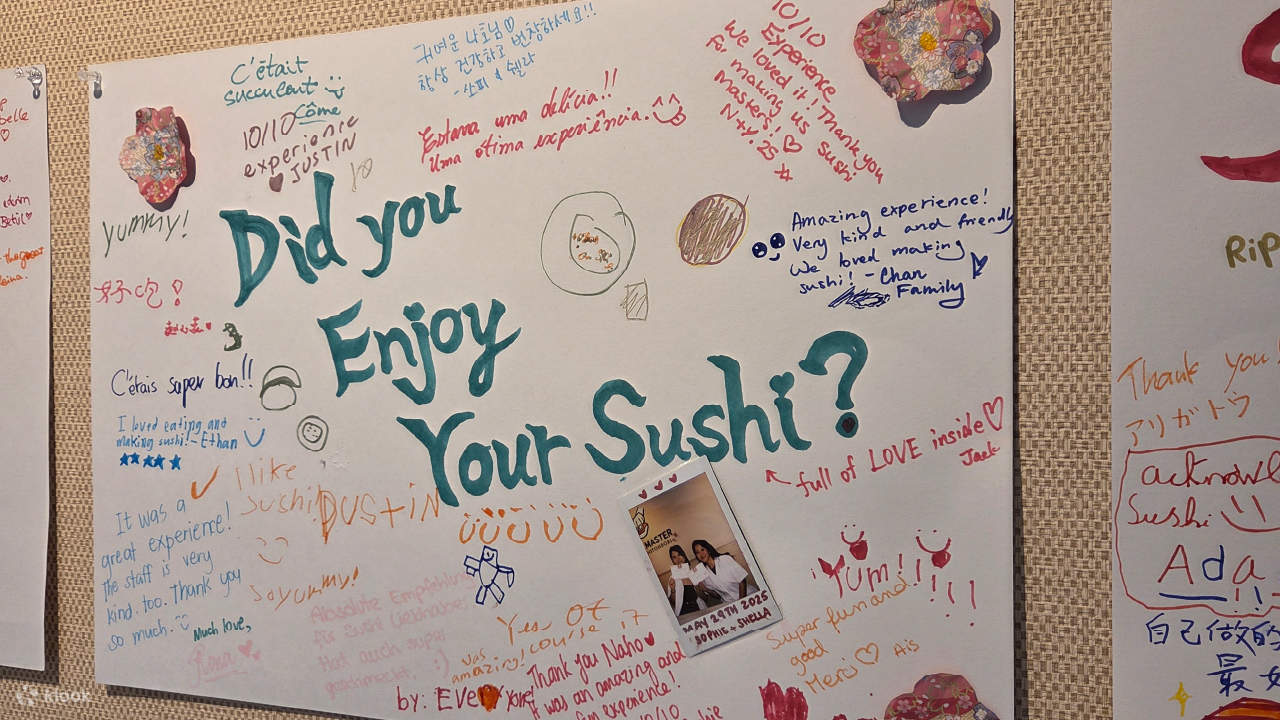 C'était
succulent
Côme
10/10
experience
JUSTIN
10
귀여운 나호님♡
항상 건강하고 번창하세요!!
- 소피 & 쉘라
Estava uma delícia!!
Uma ótima experiência.
10/10
Experience
We loved it! Thank you
for making us sushi
masters! ♡
N+Y. 25 xx
yummy!
Did you
Enjoy
Your Sushi?
Amazing experience!
Very kind and friendly
We loved making
sushi! - Chan
Family
好吃!
C'étais super bon!!
I loved eating and
making sushi! - Ethan
★★★★★
I like
Sushi!
DUSTIN
It was a
great experience!
The staff is very
kind, too. Thank you
so much.
Much love,
So yummy!
Absolute Empfehlung
für Sushi Liebhaber
Hat auch super
geschmeckt. :)
full of LOVE inside ♡
Jack
MASTER
MAY 29TH 2025
SOPHIE + SHELLA
Yum!!!!!!
Super fun and
good
Merci ♡ Ais
Yes Of
course it
was
amazing!
by: Everyone!
Thank you Naho ♥
It was an amazing and
fun experience!
10/10
Rip
Thank you!
アリガトウ
Sushi
Ada!!
自己做的
最好
klook